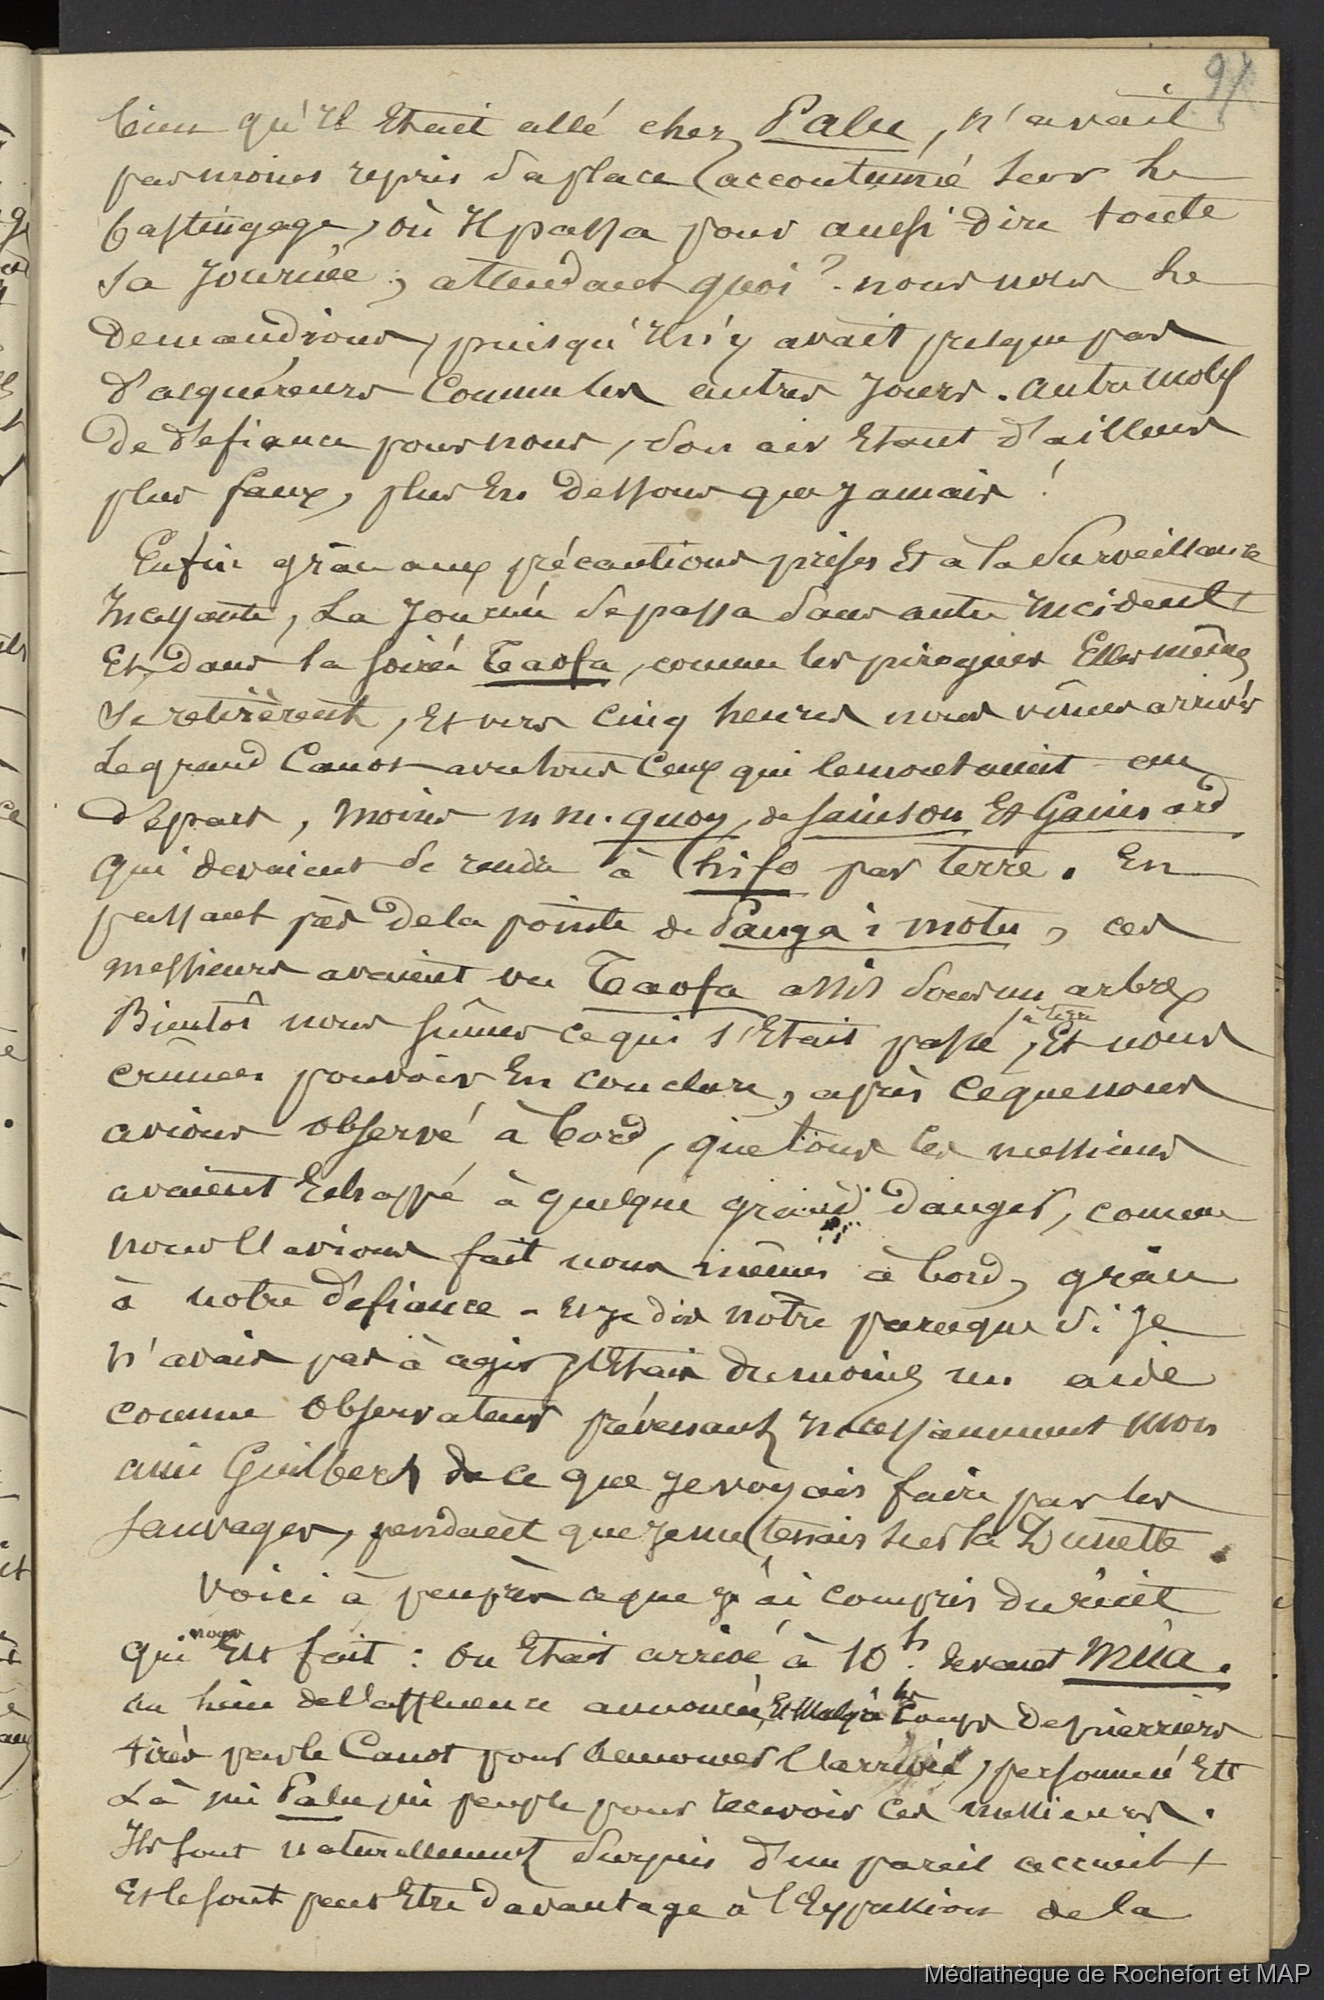 97
bien qu'Il Etait allé chez Palu, n'avait
pas moins repris sa place accoutumé sur le
bastingage, où Il passa pour ausi dire toute
sa Journée, attendant quoi ? nous nous le
demandions, puisqu'Il n'y avait presque pas
d'acquéreurs comme les autres Jours. autre motif
de défiance pour nous, son air Etant d'ailleurs
plus faux, plus En dessous que Jamais !
Enfin grâce aux précautions prises Et a la Surveillance
Incessante, La Journée se passa sans autre Incident,
Et dans la soirée Taofa, comme les pirogues Elles mêmes
se retirèrent, Et vers cinq heures nous vîmes arrivés
Le grand Canot avec tous Ceux qui le montaient au
départ, moins m m. quoy, de Sainson Et Gaimard
qui devaient se rendre à hifo par terre. En
passant près de la pointe de Panga ï motu, ces
messieurs avaient vu Taofa assis sous un arbre,
Bientôt nous sûmes ce qui s'Etait passé à terre, Et nous
crûmes pouvoir En conclure, après ce que nous
avions observé à bord, que tous les messieurs
avaient Echappé à quelque grand danger, comme
nous l'avions fait nous mêmes à bord, grâce
à notre défiance - Et Je dis notre parceque si Je
n'avais pas à agir J'Etais du moins un aide
comme observateur prévenant Incessamment mon
ami Guilbert de ce que Je voyais faire par les
sauvages, pendant que Je me tenais sur la Dunette.
Voici à peuprès ce que J'ai compris du récit
qui nous Est fait : on Etait arrivé à 10 h. devant Mua.
au lieu de l'affluence annoncée, Et malgré les Coups de pierriers
tirés par le Canot pour annoncer l'arrivée, personne n'Est
Là ni Palu ni peuple pour recevoir ces messieurs.
Ils sont naturellement Surpris d'un pareil accueil,
Et le sont peut Etre davantage à l'Expression de la
Médiathèque de Rochefort et MAP